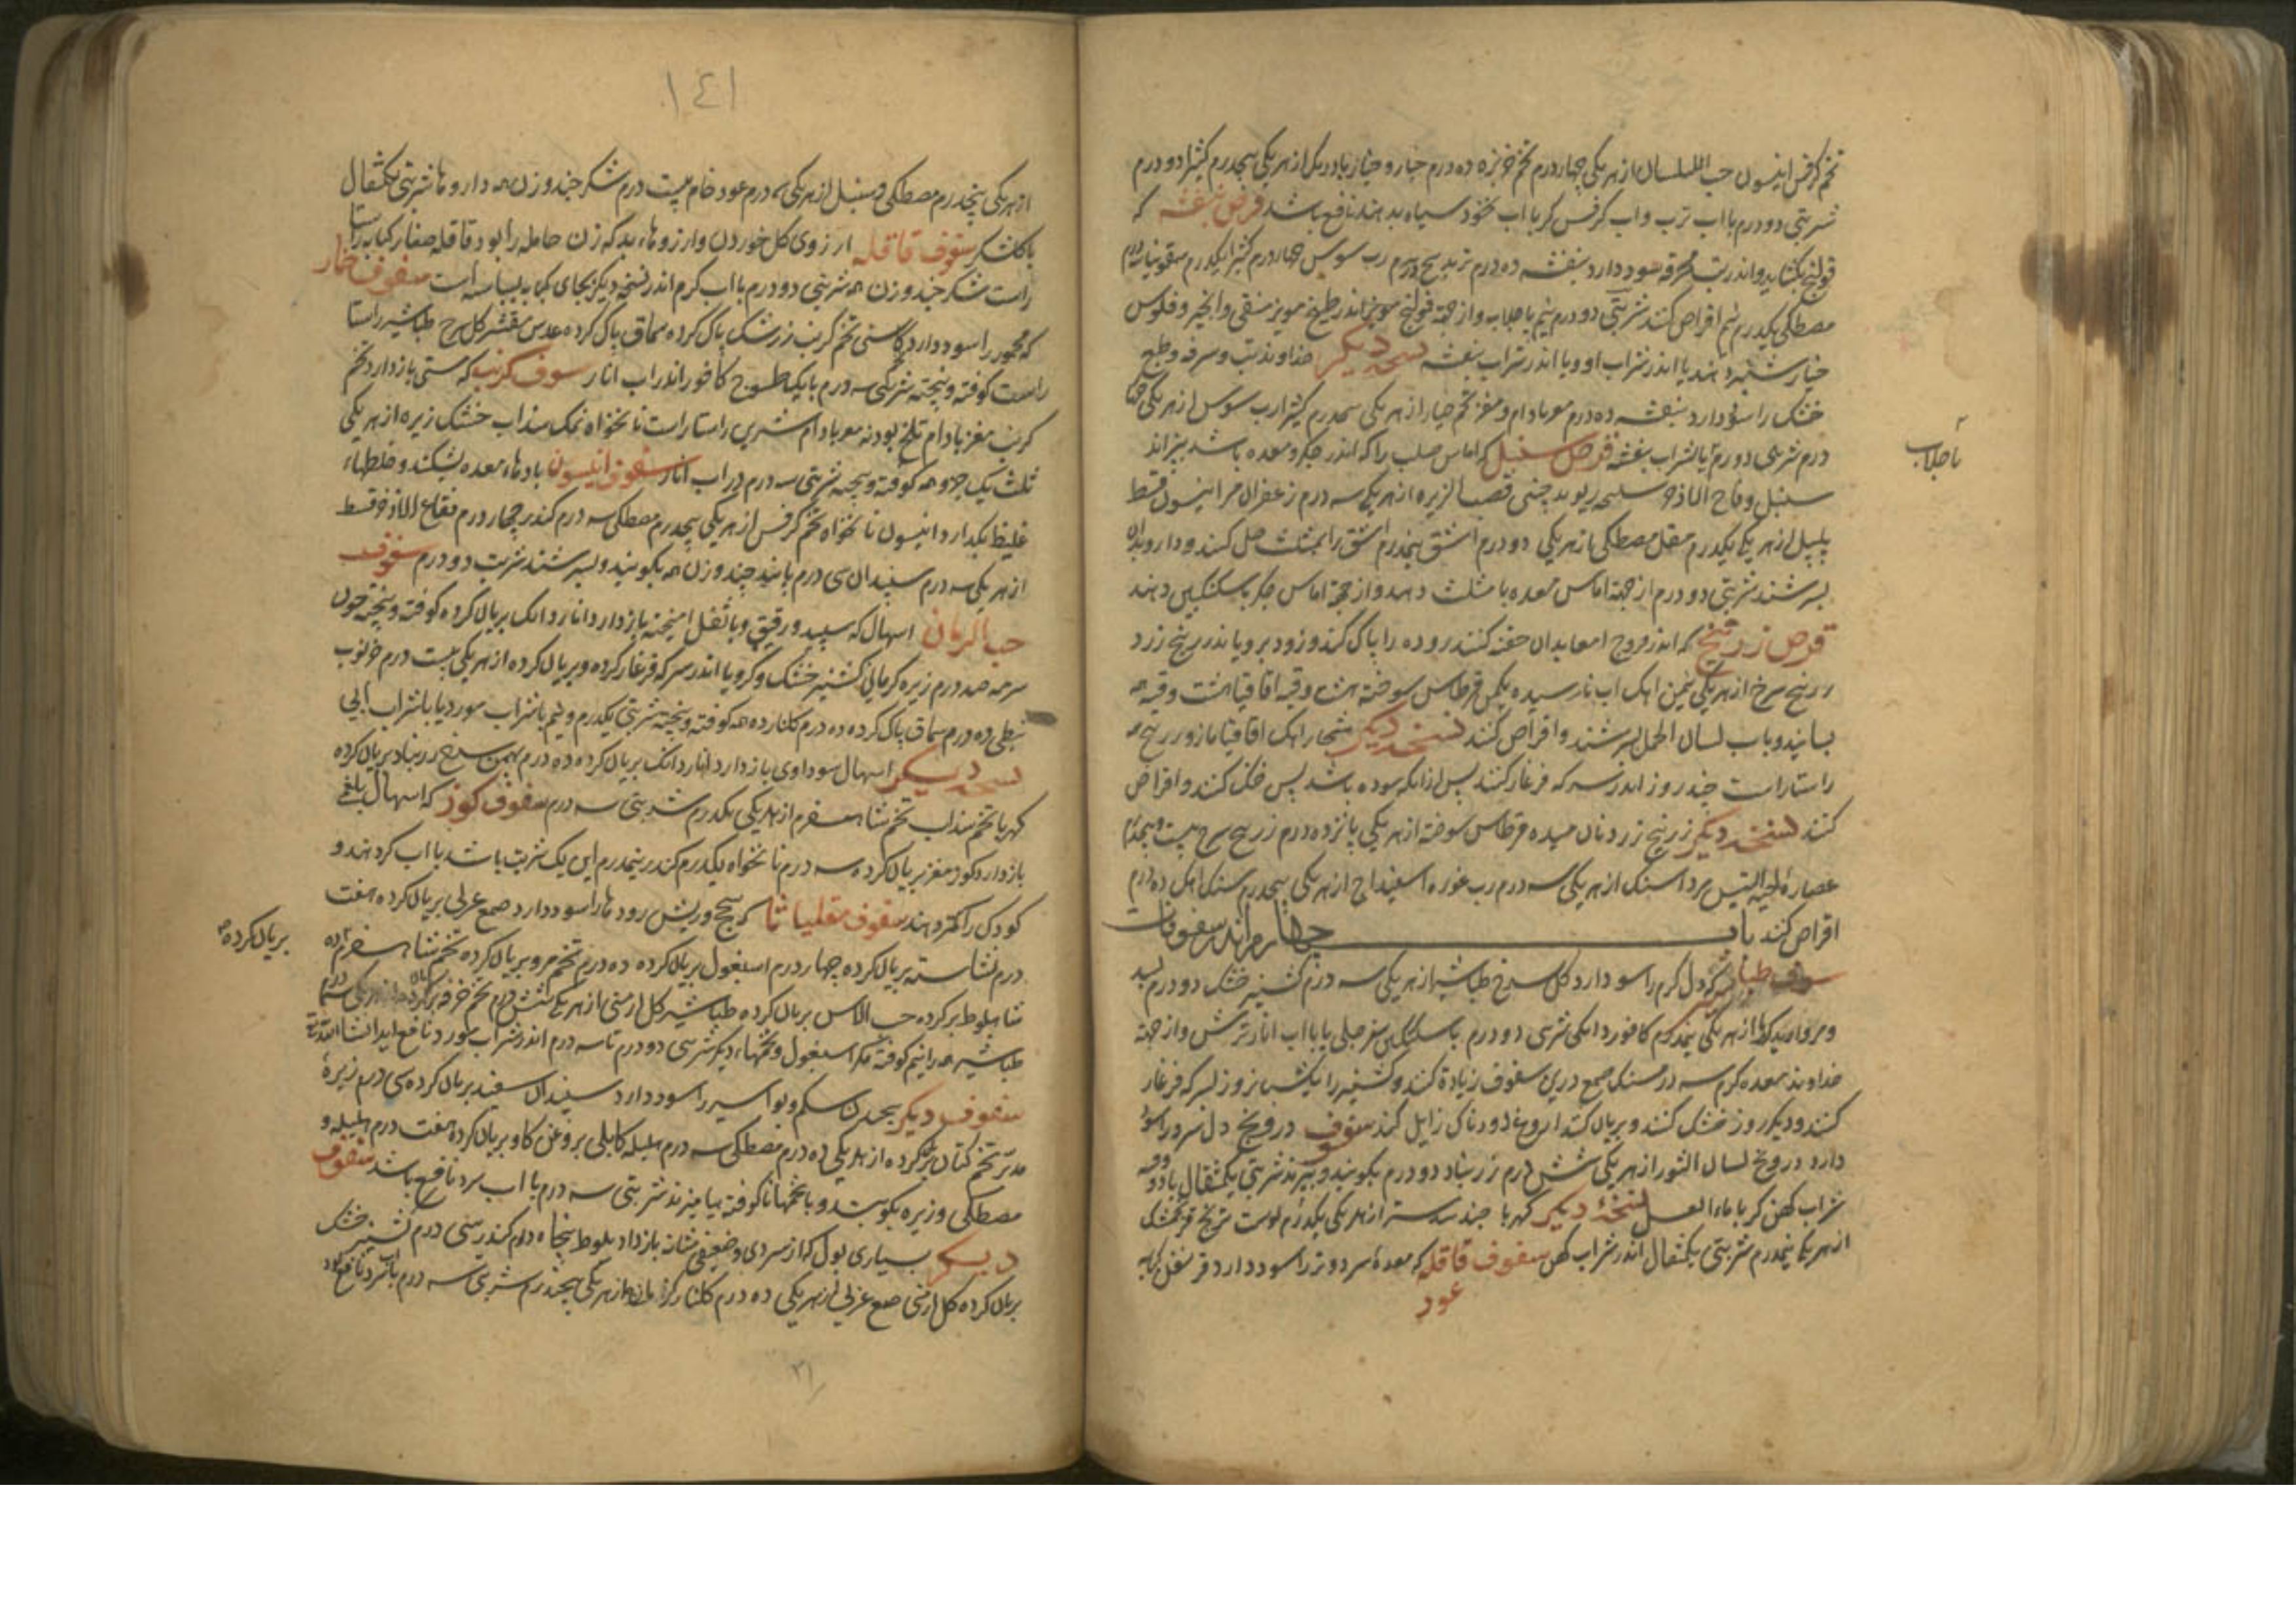 تخم کرفس انیسون حب البلسان از هریکی چهار درم تخم خربزه ده درم خیار و خیار بادرنک از هریکی پنجدرم کثیرا دو درم
شربتی دو درم با اب ترب و اب کرفس کر با اب نخود سیاه بدهند نافع باشد قرص بنفشه که
قولنج بکشاید و اندر تب محرقه سود دارد بنفشه ده درم تربد پنج درم رب سوس چهار درم کثیرا یکدرم سقمونیا
مصطکی یکدرم نیم اقراص کنند شربتی دو درم نیم با جلاب و از جهة قولنج اندر طبیخ مویز منقی و انجیر و فلوس
خیار شنبر دهند یا اندر شراب او و یا اندر شراب بنفشه نسخه دیکر خداوند تب و سرفه و طبع
خشک را سود دارد بنفشه ده درم مغز بادام و مغز تخم خیار از هریکی پنجدرم کثیرا رب سوس از هریکی
درم شربتی دو درم با شراب بنفشه قرص سنبل که اماس صلب را که اندر جکر و معده باشد بپزاند
سنبل و فقاح الاذخر سلیخه ریوند چینی قصب الزریره از هریکی سه درم زعفران مر انیسون قسط
پلپل از هریکی یکدرم مقل مصطکی از هریکی دو درم اشق پنجدرم اشق را بمثلث حل کنند و داروها بدان
بسرشند شربتی دو درم از جهة اماس معده با مثلث دهند و از جهة اماس جکر با سکنکبین دهند
قرص زرنیخ که اندر قروح امعا بدان حقنه کنند روده را پاک کند و زود برویاند زرنیخ زرد
زرنیخ سرخ از هریکی نیمن اهک اب نارسیده یکمن قرطاس سوخته هشت وقیه اقاقیا هشت وقیه همه
بسایند و باب لسان الحمل بسرشند و اقراص کنند نسخه دیکر شخار اهک اقاقیا مازو زرنیخ همه
راستاراست چند روز اندر سرکه فرغار کنند پس از انکه سوده باشد پس خشک کنند و اقراص
کنند نسخه دیکر زرنیخ زرد نان میده قرطاس سوخته از هریکی پانزده درم زرنیخ سرخ بیست و پنجدرم
عصاره لحیة التیس مرداسنک از هریکی سه درم رب غوره اسفیداج از هریکی پنجدرم سنک اهک ده درم
اقراص کنند باب چهارم اندر سفوفات
سفوف طباشیر که دل کرم را سود دارد کل سرخ طباشیر از هریکی سه درم کشنیز خشک دو درم بسد
و مروارید کهربا از هریکی نیمدرم کافور دانکی شربتی دو درم با سکنکبین سفرجلی یا با اب انار ترش و از جهة
خداوند معده کرم سه درمسنک صمغ درین سفوف زیادة کنند و کشنیز را یک شبانروز بسرکه فرغار
کنند و دیکر روز خشک کنند و بریان کنند اروغ دودناک زایل کند سفوف درونج دل سرد را سود
دارد درونج لسان الثور از هریکی شش درم زرنباد دو درم بکوبند و بپزند شربتی یکمثقال با دو وقیه
شراب کهن کر با ماء العسل نسخهٔ دیکر کهربا جندبیدستر از هریکی یکدرم پوست ترنج فرنجمشک
از هریکی نیمدرم شربتی یکمثقال اندر شراب کهن سفوف قاقله که معدهٔ سرد و تر را سود دارد قرنفل کبابه
عود
با جلاب
۱٤۱
از هریکی پنجدرم مصطکی و سنبل از هریکی سه درم عود خام بیست درم شکر چند وزن همه داروها شربتی یکمثقال
با کلشکر سفوف قاقله ارزوی کل خوردن و ارزوهاء بد که زن حامله را بود قاقله صغار کبابه راستا
راست شکر چند وزن همه شربتی دو درم با اب کرم اندر نسخه دیکر بجای کبابه بسباسه است سفوف خمار
که مخمور را سود دارد کاسنی تخم کرنب زرشک پاک کرده سماق پاک کرده عدس مقشر کل سرخ طباشیر راستا
راست کوفته و پیخته شربتی سه درم با یک طسوج کافور اندر اب انار سفوف کرنب که مستی بازدارد تخم
کرنب مغز بادام تلخ پودنه مغز بادام شیرین راستاراست نانخواه نمک سذاب خشک زیره از هریکی
ثلث یک جزو همه کوفته و پیخته شربتی سه درم در اب انار سفوف انیسون بادهاء معده بشکند و خلطهاء
غلیظ بکدارد انیسون نانخواه تخم کرفس از هریکی پنجدرم مصطکی سه درم کندر چهار درم فقاح الاذخر قسط
از هریکی سه درم سپندان سی درم پانید چند وزن همه بکوبند و بسرشند شربت دو درم سفوف
حب الرمان اسهال که سپید و رقیق و با ثفل امیخته بازدارد انار دانک بریان کرده کوفته و پیخته چون
سرمه صد درم زیره کرمانی کشنیز خشک و کرویا اندر سرکه فرغار کرده و بریان کرده از هریکی بیست درم خرنوب
نبطی ده درم سماق پاک کرده ده درم کلنار ده همه کوفته و پیخته شربتی یکدرم و نیم با شراب مورد یا با شراب ابی
نسخه دیکر اسهال سوداوی بازدارد انار دانک بریان کرده ده درم بهمن سرخ زرنباد بریان کرده
کهربا تخم سذاب تخم شاهسفرم از هریکی یکدرم شربتی سه درم سفوف کوز که اسهال بلغمی
بازدارد کوز مغز بریان کرده سه درم نانخواه یکدرم کندر نیمدرم این یک شربت باشد با اب کرم دهند و
کودک را کمتر دهند سفوف مقلیاثا که سحج و ریش رودها را سود دارد صمغ عربی بریان کرده هفت
درم نشاسته بریان کرده چهار درم اسبغول بریان کرده ده درم تخم مرو بریان کرده تخم شاهسفرم ده
شاهبلوط بر کرده حب الاس بریان کرده طباشیر کل ارمنی از هریکی شش درم تخم خرفه بریان کرده
طباشیر همه را نیم کوفته مکر اسبغول و تخمهاء دیکر شربتی دو درم تا سه درم اندر شراب مورد نافع اید انشا الله تعالی
سفوف دیکر پیچیدن شکم و بواسیر را سود دارد سپندان سفید بریان کرده سی درم زیرهٔ
مدبر تخم کتان بر کرده از هریکی ده درم مصطکی سه درم هلیله کابلی بروغن کاو بریان کرده هفت درم هلیله و
مصطکی و زیره بکوبند و با تخمها ناکوفته بیامیزند شربتی سه درم با اب سرد نافع باشد سفوف
دیکر بسیاری بول که از سردی و ضعیفی مثانه بازدارد بلوط پنجاه درم کندر سی درم کشنیز خشک
بریان کرده کل ارمنی صمغ عربی از هریکی ده درم کلنار از هریکی پنجدرم شربتی سه درم با اب سرد نافع بود
بریان کرده
۳۱